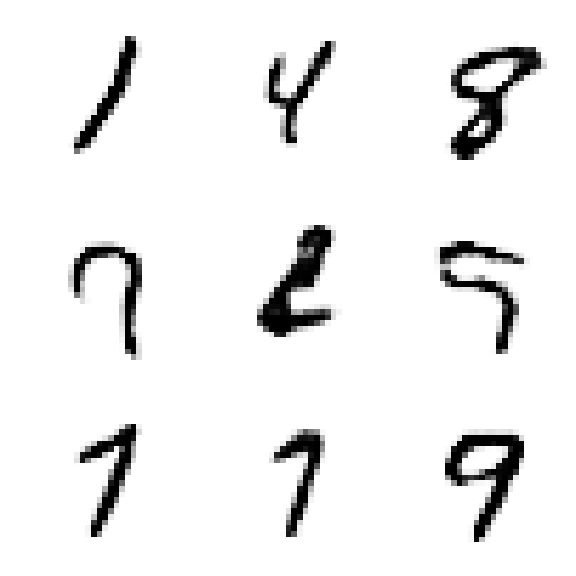 1 4 8
7 2 5
7 7 9